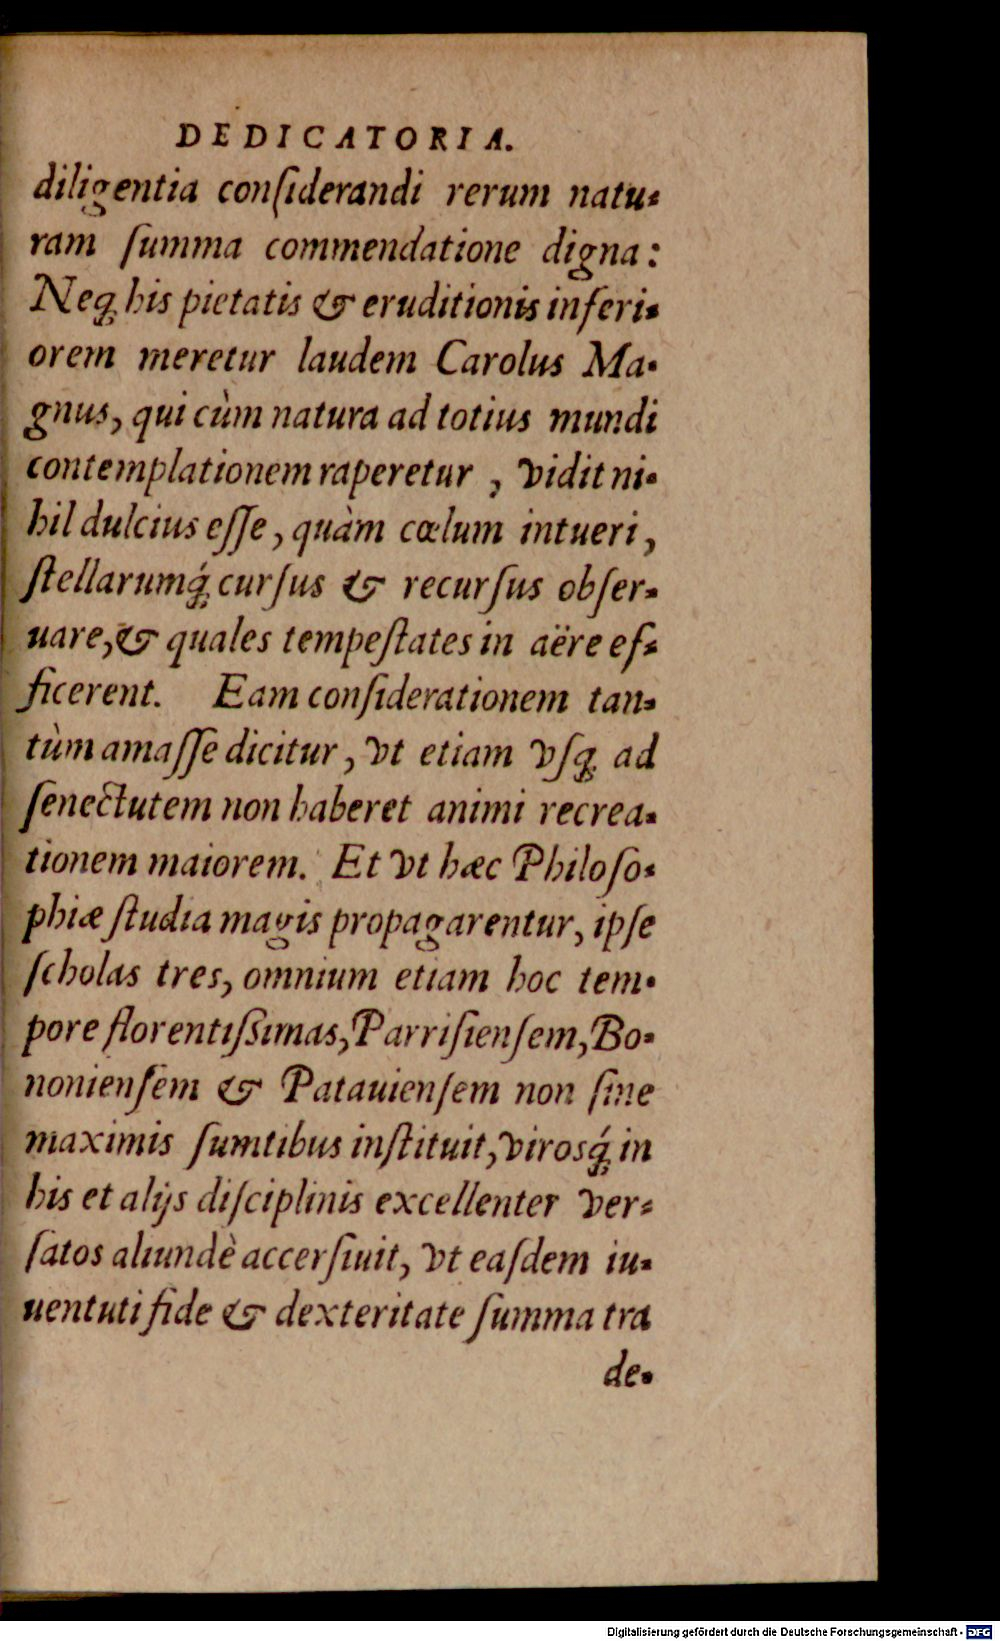 DEDICATORIA.
diligentia conſiderandi rerum natu-
ram ſumma commendatione digna:
Neq; his pietatis & eruditionis inferi-
orem meretur laudem Carolus Ma-
gnus, qui cùm natura ad totius mundi
contemplationem raperetur, vidit ni-
hil dulcius eſſe, quàm cœlum intueri,
ſtellarumq́; curſus & recurſus obſer-
uare, & quales tempeſtates in aëre ef-
ficerent. Eam conſiderationem tan-
tùm amaſſe dicitur, vt etiam vſq; ad
ſenectutem non haberet animi recrea-
tionem maiorem. Et vt hæc Philoſo-
phiæ ſtudia magis propagarentur, ipſe
ſcholas tres, omnium etiam hoc tem-
pore florentiſsimas, Parriſienſem, Bo-
nonienſem & Patauienſem non ſine
maximis ſumtibus inſtituit, virosq́; in
his et alijs diſciplinis excellenter ver-
ſatos aliundè accerſiuit, vt eaſdem iu-
uentuti fide & dexteritate ſumma tra
de-
Digitalisierung gefördert durch die Deutsche Forschungsgemeinschaft - DFG